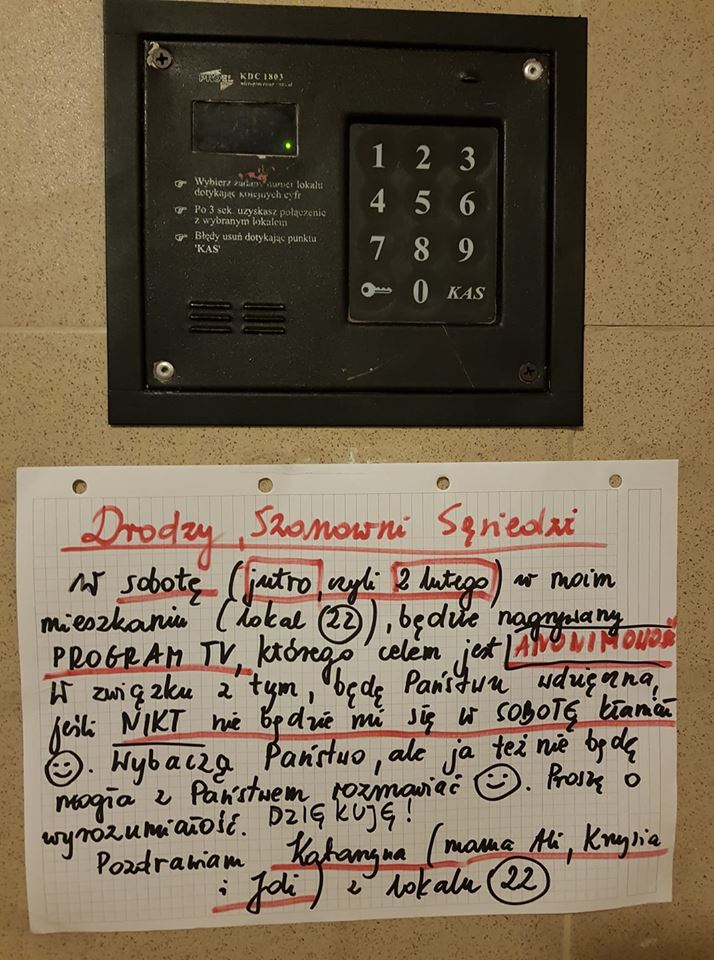 PROEL KDC 1803
Wybierz żądany numer lokalu
dotykając kolejnych cyfr
Po 3 sek. uzyskasz połączenie
z wybranym lokalem
Błędy usuń dotykając punktu
'KAS'
1 2 3
4 5 6
7 8 9
0 KAS
Drodzy, Szanowni Sąsiedzi
W sobotę (jutro, czyli 2 lutego) w moim
mieszkaniu (lokal 22), będzie nagrywany
PROGRAM TV, którego celem jest ANONIMOWOŚĆ
W związku z tym, będę Państwu wdzięczna,
jeśli NIKT nie będzie mi się w SOBOTĘ kłaniał
☺. Wybaczą Państwo, ale ja też nie będę
mogła z Państwem rozmawiać ☺. Proszę o
wyrozumiałość. DZIĘKUJĘ!
Pozdrawiam Katarzyna (mama Ali, Krzysia
i Jdi) z lokalu 22